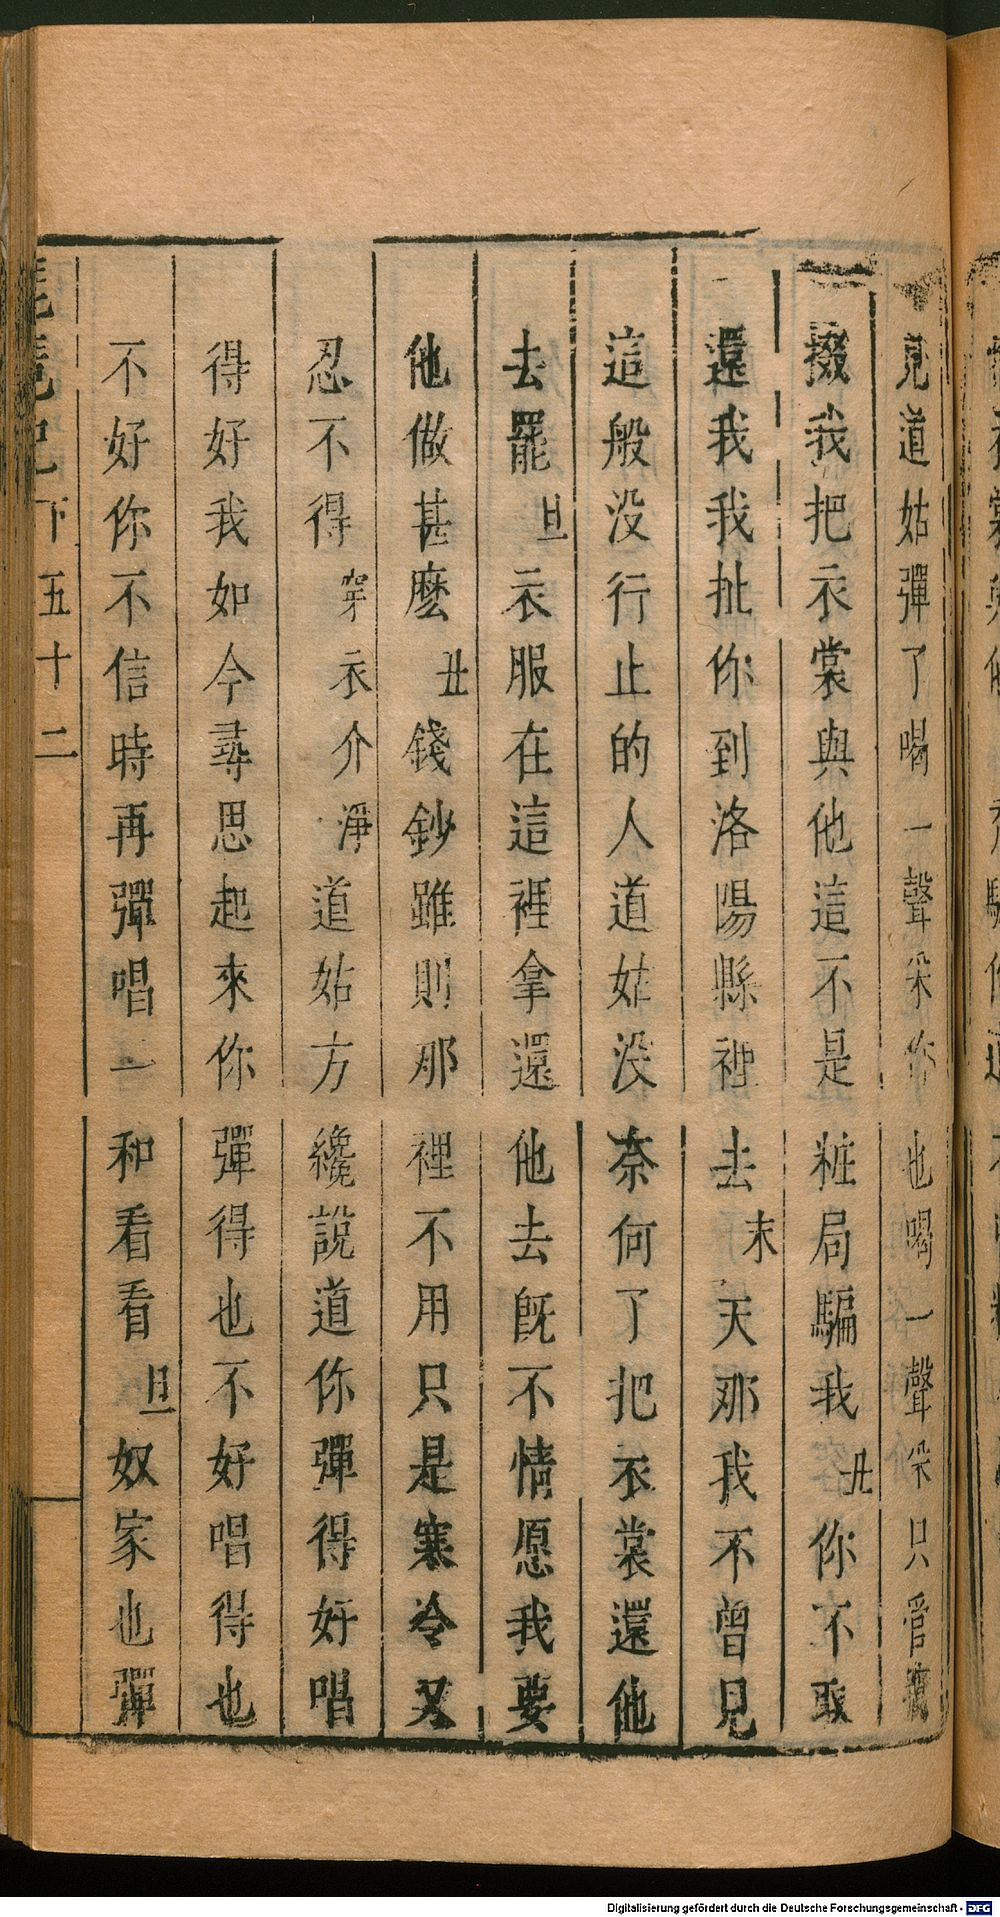 見道姑彈了喝一聲朵你也喝一聲朵只管
掇我把衣裳與他這不是粧局騙我丑你不取
還我我扯你到洛陽縣裡去末天那我不曾見
這般没行止的人道姑没奈何了把衣裳還他
去罷旦衣服在這裡拿還他去旣不情愿我要
他做甚麽丑錢鈔雖則那裡不用只是寒冷又
忍不得穿衣介淨道姑方纔說道你彈得好唱
得好我如今尋思起來你彈得也不好唱得也
不好你不信時再彈唱一和看看旦奴家也彈
琵琶記下 五十二
Digitalisierung gefördert durch die Deutsche Forschungsgemeinschaft - DFG